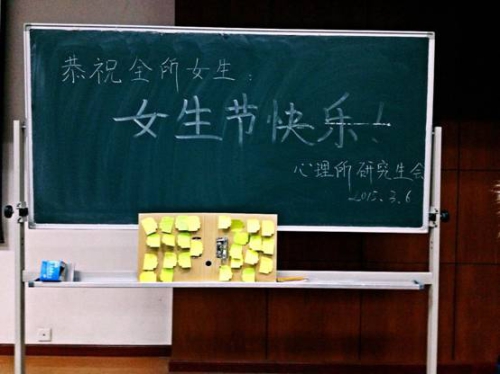 恭祝全所女生：
女生节快乐！
心理所研究生会
2015.3.6